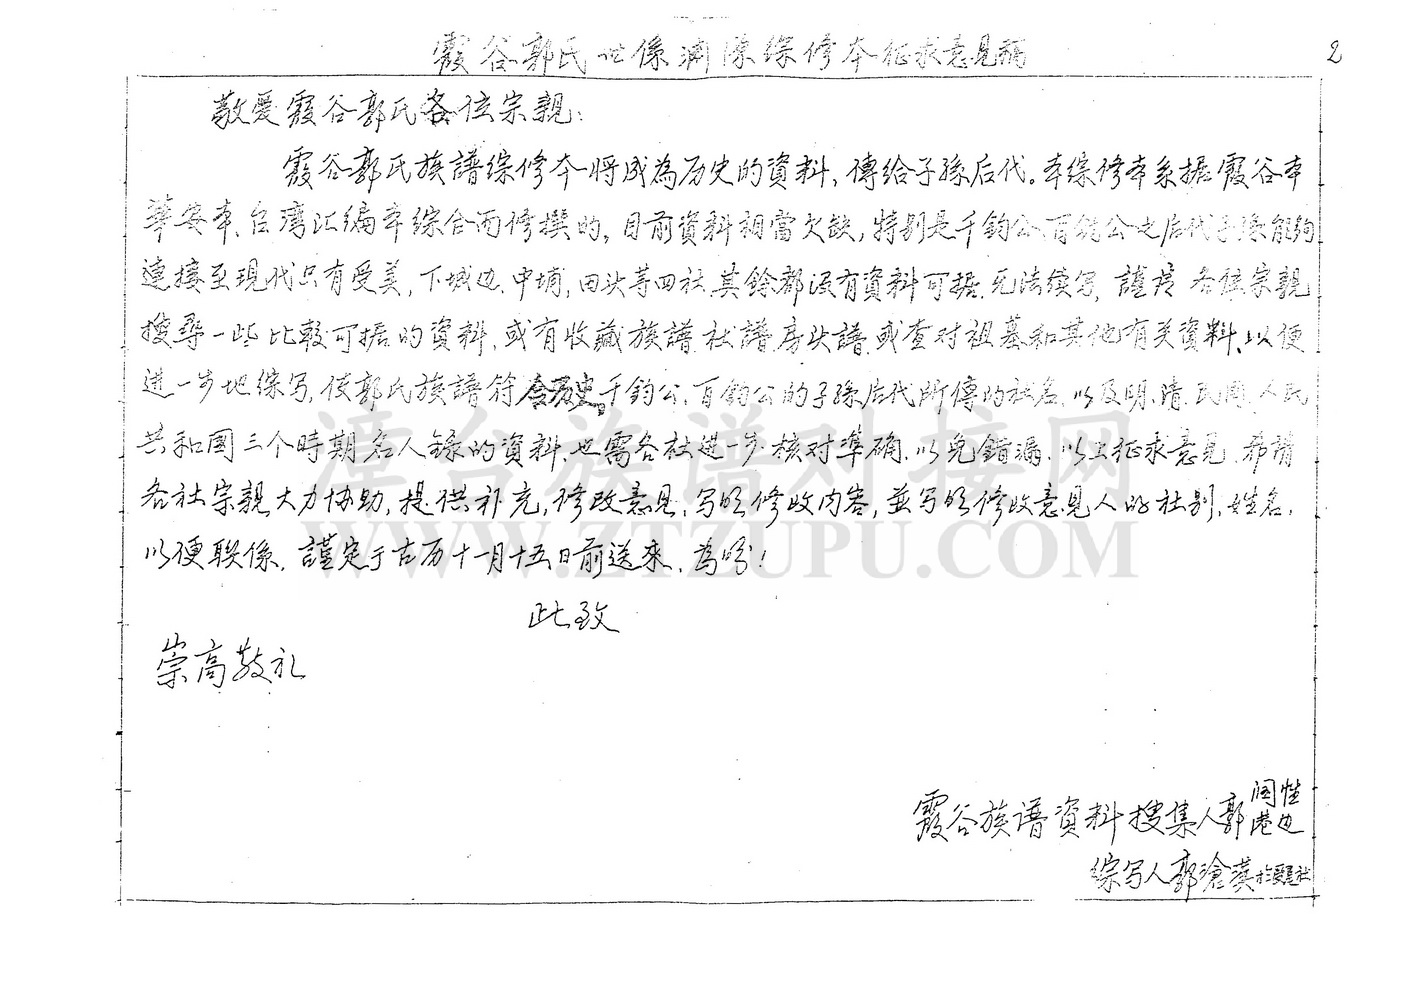 霞谷郭氏世係渊源综修本征求意見稿
2
敬爱霞谷郭氏各位宗親：
霞谷郭氏族譜综修本将成為历史的資料，傳給子孫后代。本综修本系据霞谷本
華安本、台湾汇编本综合而修撰的，目前資料相當欠缺，特别是千鈞公、百鈞公之后代子孫能夠
連接至現代只有受美，下城边，中埔，田头等四社，其餘都没有資料可据，无法续写，謹 各位宗親
搜尋一些比較可据的資料，或有收藏族譜、社譜、房头譜，或查对祖墓和其他有关資料、以便
进一步地综写，使郭氏族譜符合历史。千鈞公、百鈞公的子孫后代所傳的社名，以及明、清、民国、人民
共和國三个時期名人録的資料，也需各社进一步核对準确，以免錯漏，以上征求意見，希請
各社宗親大力协助，提供补充，修改意見，写明修改内容，並写明修改意見人的社别，姓名，
以便联係，謹定于古历十一月十五日前送來，為盼！
此致
崇高敬礼
霞谷族谱資料搜集人郭
港边
综写人郭滄漢于受美社
漳台族谱对接网
WWW.ZTZUPU.COM